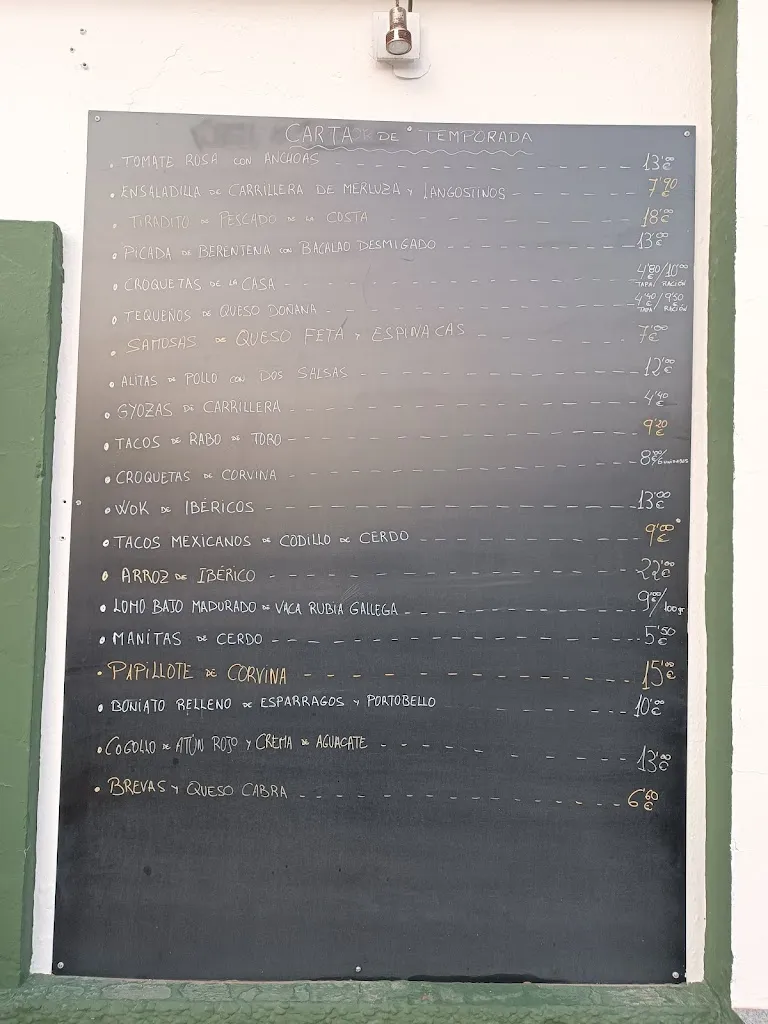 CARTA DE TEMPORADA
• TOMATE ROSA CON ANCHOAS 13'00 €
• ENSALADILLA DE CARRILLERA DE MERLUZA Y LANGOSTINOS 7'90 €
• TIRADITO DE PESCADO DE LA COSTA 18'00 €
• PICADA DE BERENJENA CON BACALAO DESMIGADO 13'00 €
• CROQUETAS DE LA CASA 4'80/10'00 € TAPA/RACIÓN
• TEQUEÑOS DE QUESO DOÑANA 4'40/9'50 € TAPA/RACIÓN
• SAMOSAS DE QUESO FETA Y ESPINACAS 7'00 €
• ALITAS DE POLLO CON DOS SALSAS 12'00 €
• GYOZAS DE CARRILLERA 4'40 €
• TACOS DE RABO DE TORO 9'20 €
• CROQUETAS DE CORVINA
• WOK DE IBÉRICOS 13'00 €
• TACOS MEXICANOS DE CODILLO DE CERDO 9'00 €
• ARROZ DE IBÉRICO 22'00 €
• LOMO BAJO MADURADO DE VACA RUBIA GALLEGA 9'00 €/100gr
• MANITAS DE CERDO 5'50 €
• PAPILLOTE DE CORVINA 15'00 €
• BONIATO RELLENO DE ESPARRAGOS Y PORTOBELLO 10'00 €
• COGOLLO DE ATÚN ROJO Y CREMA DE AGUACATE 13'00 €
• BREVAS Y QUESO CABRA 6'60 €